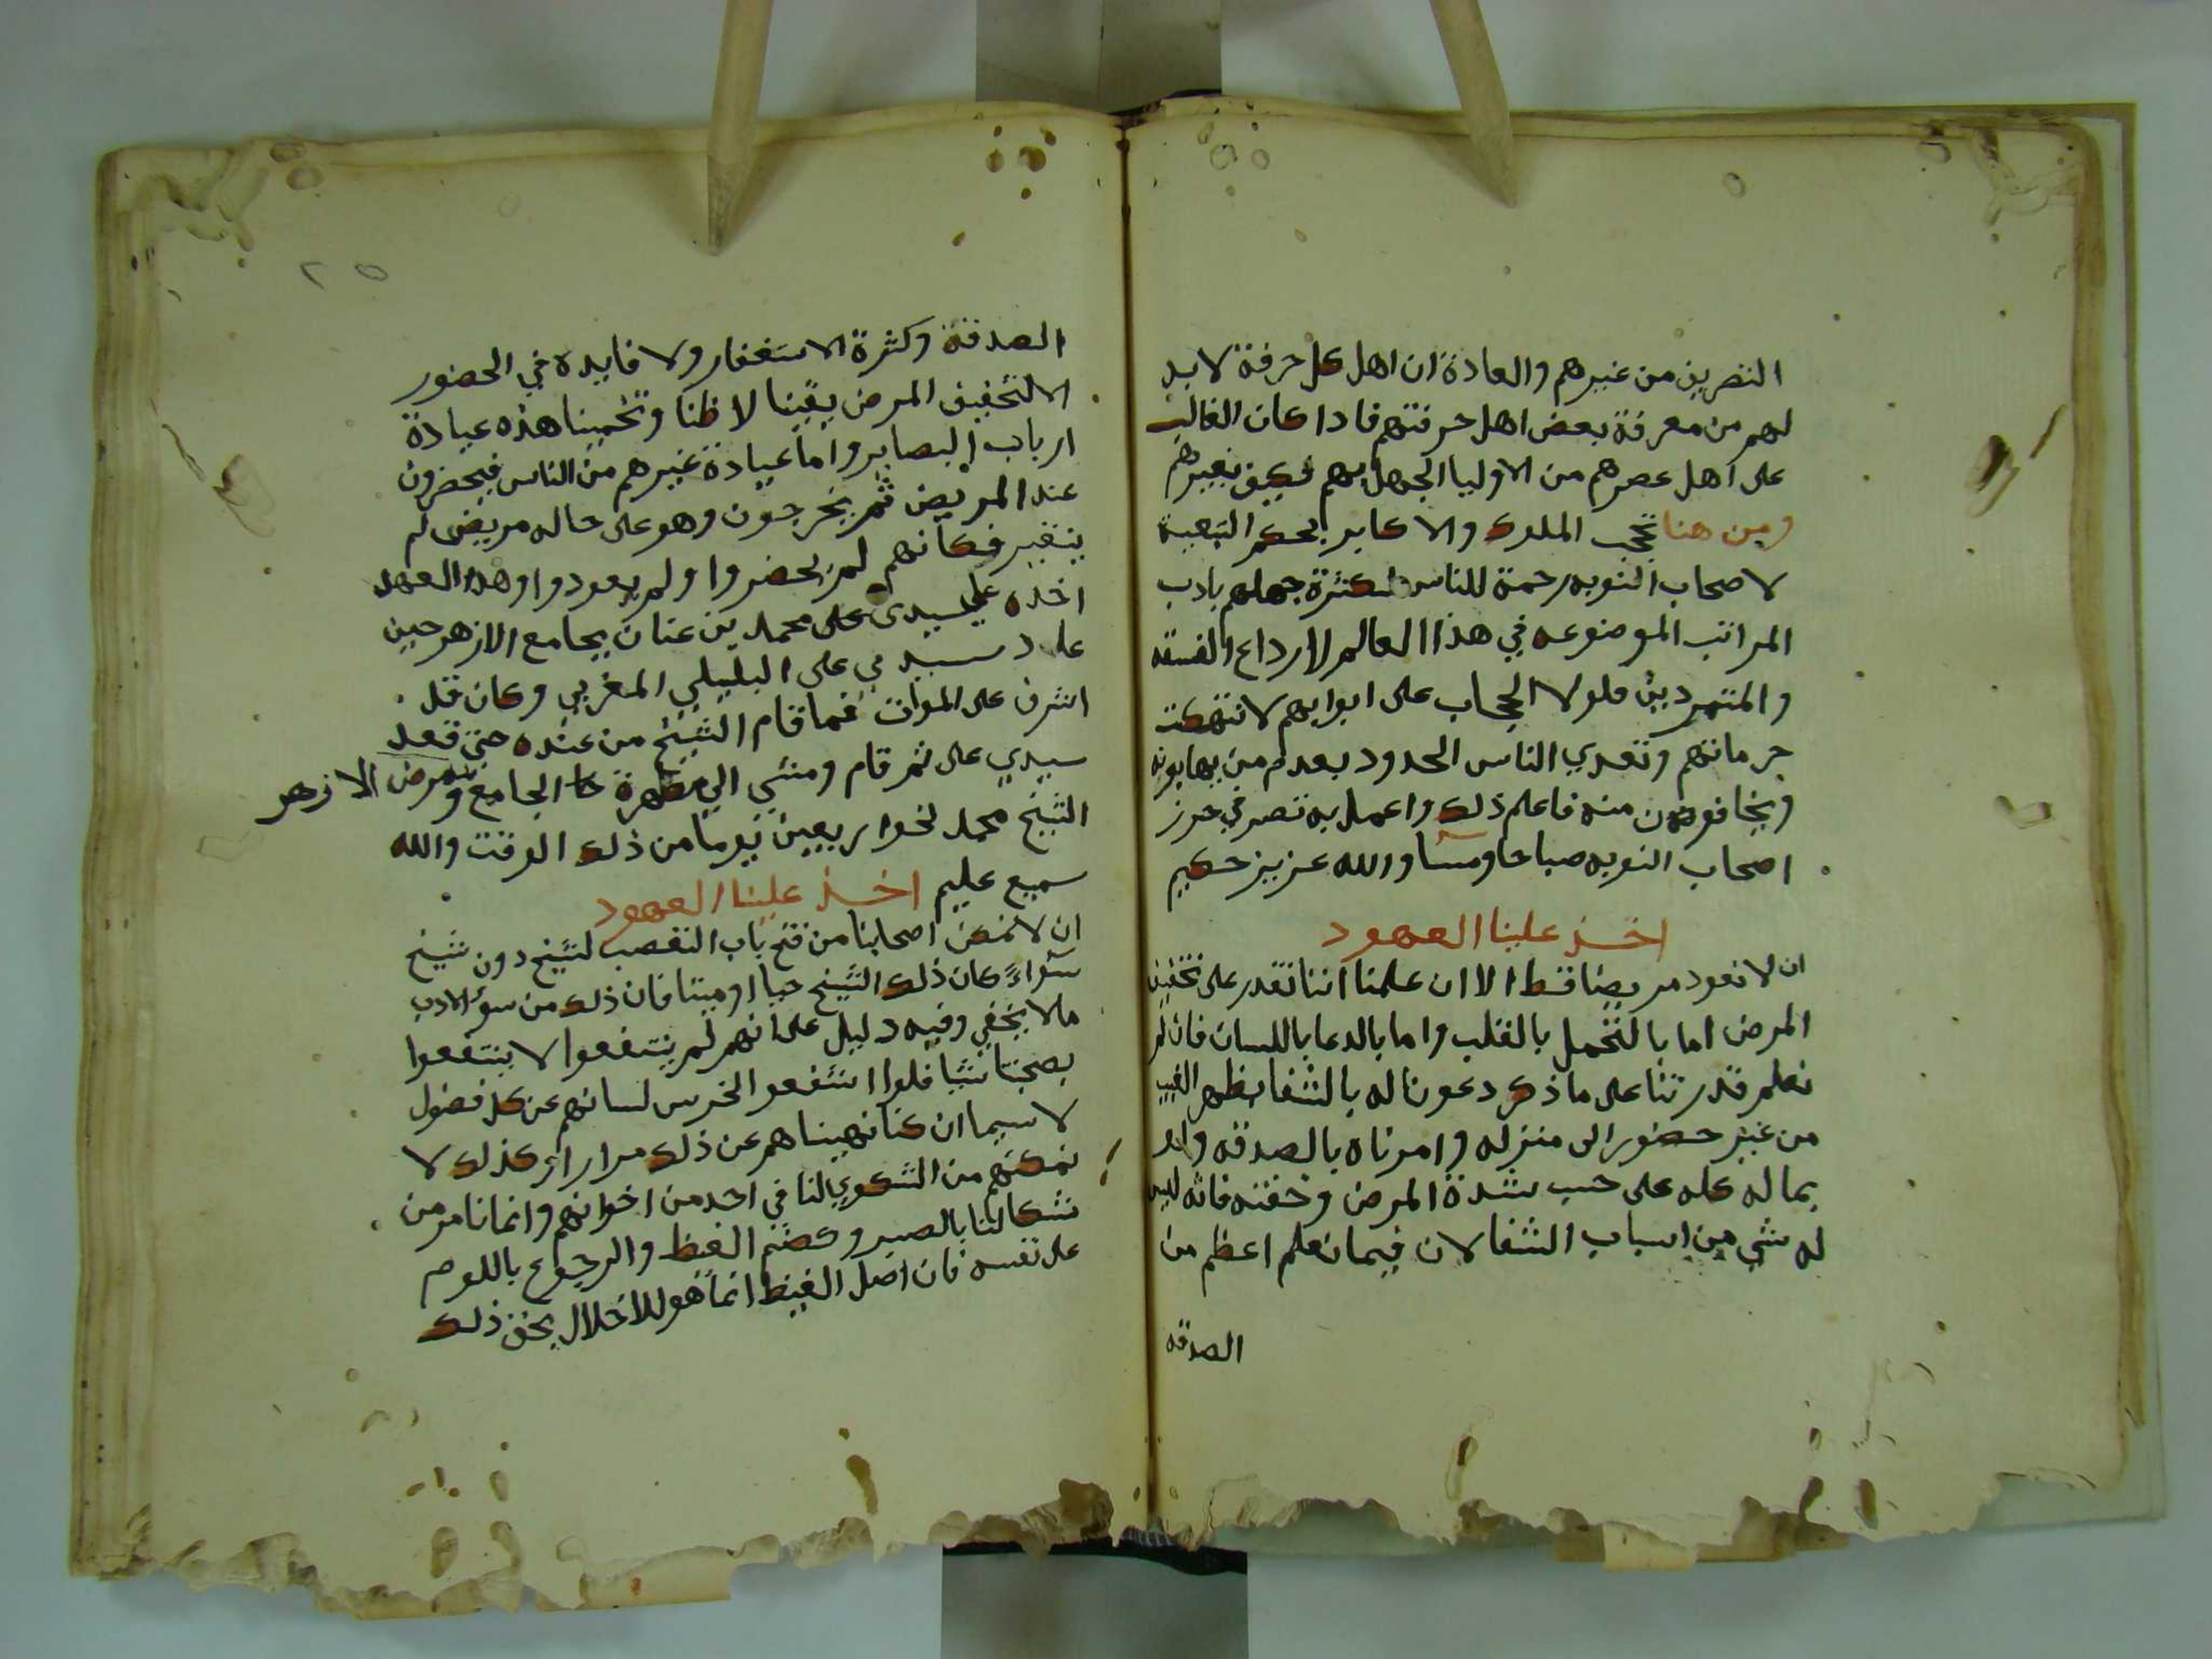 التصريف من غيرهم والعادة ان اهل كل حرفة لابد
لهم من معرفة بعض اهل حرفتهم فاذا كان الغالب
على اهل عصرهم من الاوليا الجهل بهم فكيف بغيرهم
ومن هنا تحجب الملوك والاكابر بحكم التبعية
لاصحاب النوبه رحمة للناس لكثرة جهلهم بادب
المراتب الموضوعه في هذا العالم لارداع الفسقه
والمتمردين فلولا الحجاب على ابوابهم لانتهكت
حرماتهم وتعدي الناس الحدود بعدم من يهابونه
ويخافون منه فاعلم ذلك واعمل به تصر في حرز
اصحاب النوبه صباحا ومسا والله عزيز حكيم
اخذ علينا العهود
ان لا نعود مريضا قط الا ان علمنا اننا نقدر على تخفيف
المرض اما بالتحمل بالقلب واما بالدعا باللسان فان لم
نعلم قدرتنا على ما ذكر دعونا له بالشفا بظهر الغيب
من غير حضور الى منزله وامرناه بالصدقه ولو
بماله كله على حسب شدة المرض وخفته فانه ليس
له شي من اسباب الشفا لان فيما نعلم اعظم من
الصدقه
٢٥
الصدقة وكثرة الاستغفار ولا فايده في الحضور
الا لتخفيف المرض يقينا لا ظنا وتخمينا هذه عيادة
ارباب البصاير واما عيادة غيرهم من الناس فيحضرون
عند المريض ثم يخرجون وهو على حاله مريض لم
يتغير فكانهم لم يحضروا ولم يعودوا وهذا العهد
اخذه علي سيدى على محمد بن عنان بجامع الازهر حين
عاد سيدي على البلبلي المغربي وكان قد
اشرف على الموات فما قام الشيخ من عنده حتى قعد
سيدي على ثم قام ومشي الي مطهرة الجامع ومرض الازهر
الشيخ محمد نحو اربعين يوما من ذلك الوقت والله
سميع عليم اخذ علينا العهود
ان لا نمكن اصحابنا من فتح باب التعصب لشيخ دون شيخ
سواء كان ذلك الشيخ حيا او ميتا فان ذلك من سوء الادب
ما لا يخفي وفيه دليل على انهم لم ينتفعوا لا ينتفعوا
بصحبتنا شيا فلو انتفعوا الخرس لسانهم عن كل فضول
لا سيما ان كنا نهيناهم عن ذلك مرارا وكذلك لا
نمكنهم من الشكوي لنا في احد من اخوانهم وانما نامر من
شكا لنا بالصبر وكضم الغيظ والرجوع باللوم
على نفسه فان اصل الغيظ انما هو للاخلال بحق ذلك